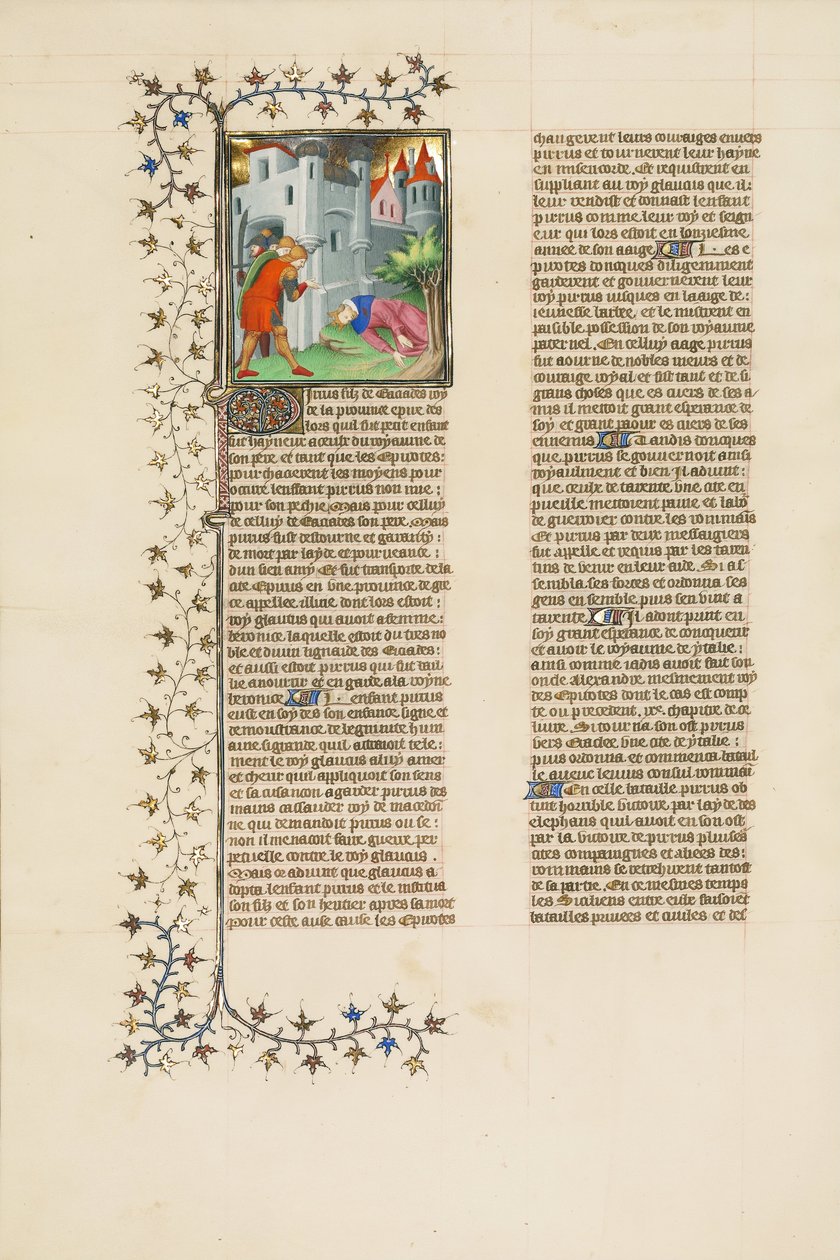 Pirrus filz de Eacides roy
de la province epire des
lors quil fut petit enfant
fut hayneux a ceulx du royaume de
son pere. et tant que les Epirotes:
pourchacerent les moyens pour
occire lenffant pirrus non mie:
pour son pechie. Mais pour celluy
de celluy de Eacides son pere. Mais
pirrus fust destourne et garanty:
de mort par layde et pourveance:
dun sien amy Et fut transporte de la
cite Epirus en une province de gre
ce appellee illirie dont lors estoit:
roy glaucus qui avoit a femme:
beronice laquelle estoit du tres no
ble et divin lignaide des Eacides:
et aussi estoit pirrus qui fut bail
lie a nourrir et en garde a la royne
beronice L enfant pirrus
eust en soy des son enfance signe et
demonstrance de begninite hum
aine si grande quil actraioit tele:
ment le roy glaucus a luy amer
et cherir quil appliquoit son sens
et sa cusancon a garder pirrus des
mains cassander roy de macedoi
ne qui demandoit pirrus ou se:
non il menacoit faire guerre per
petuelle contre le roy glaucus.
Mais ce advint que glaucus a
dopta lenfant pirrus et le institua
son filz et son heritier apres sa mort
Pour ceste cause les Epirotes
changerent leurs couraiges envers
pirrus et tournerent leur hayne
en misericorde. Et requistrent en
suppliant au roy glaucus que il:
leur rendist et donnast lenfant
pirrus comme leur roy et seign
eur qui lors estoit en lonziesme
annee de son aaige L es e
pirotes doncques diligemment
garderent et gouvernerent leur
roy pirrus jusques en laaige de:
jeunesse barbee. et le mistrent en
paisible possession de son royaume
paternel. En celluy aage pirrus
fut aourne de nobles meurs et de
couraige royal et fist tant et de si
grans choses que es cuers de ses a
mis il mettoit grant esperance de
soy et grant paour es cuers de ses
ennemis Tandis doncques
que pirrus se gouvernoit ainsi
royaulment et bien Il advint:
que ceulx de tarente une cite en
pueille mettoient paine et labo
de guerroier contre les rommains
Et pirrus par deux messaigiers
fut appelle et requis par les taren
tins de venir en leur aide. Si as
sembla ses forces et ordonna ses
gens ensemble puis sen vint a
tarente Il adont print en
soy grant esperance de conquerir
et avoir le royaume de ytalie:
ainsi comme jadis avoit fait son
oncle Alexandre mesmement roy
des Epirotes dont le cas est comp
te ou precedent .xx. chapitre de ce
livre. Si tourna son ost pirrus
vers Eraclee une cite de ytalie:
puis ordonna et commenca batail
le avecques levius consul rommain
En celle bataille pirrus ob
tint horrible victoire par layde des
elephans quil avoit en son ost
par la victoire de pirrus pluises
cites compaignes et aliees des:
rommains se retrehirent tantost
de sa partie. En ce mesmes temps
les Siciliens entre eulx faisoiet
batailles privees et civiles et des